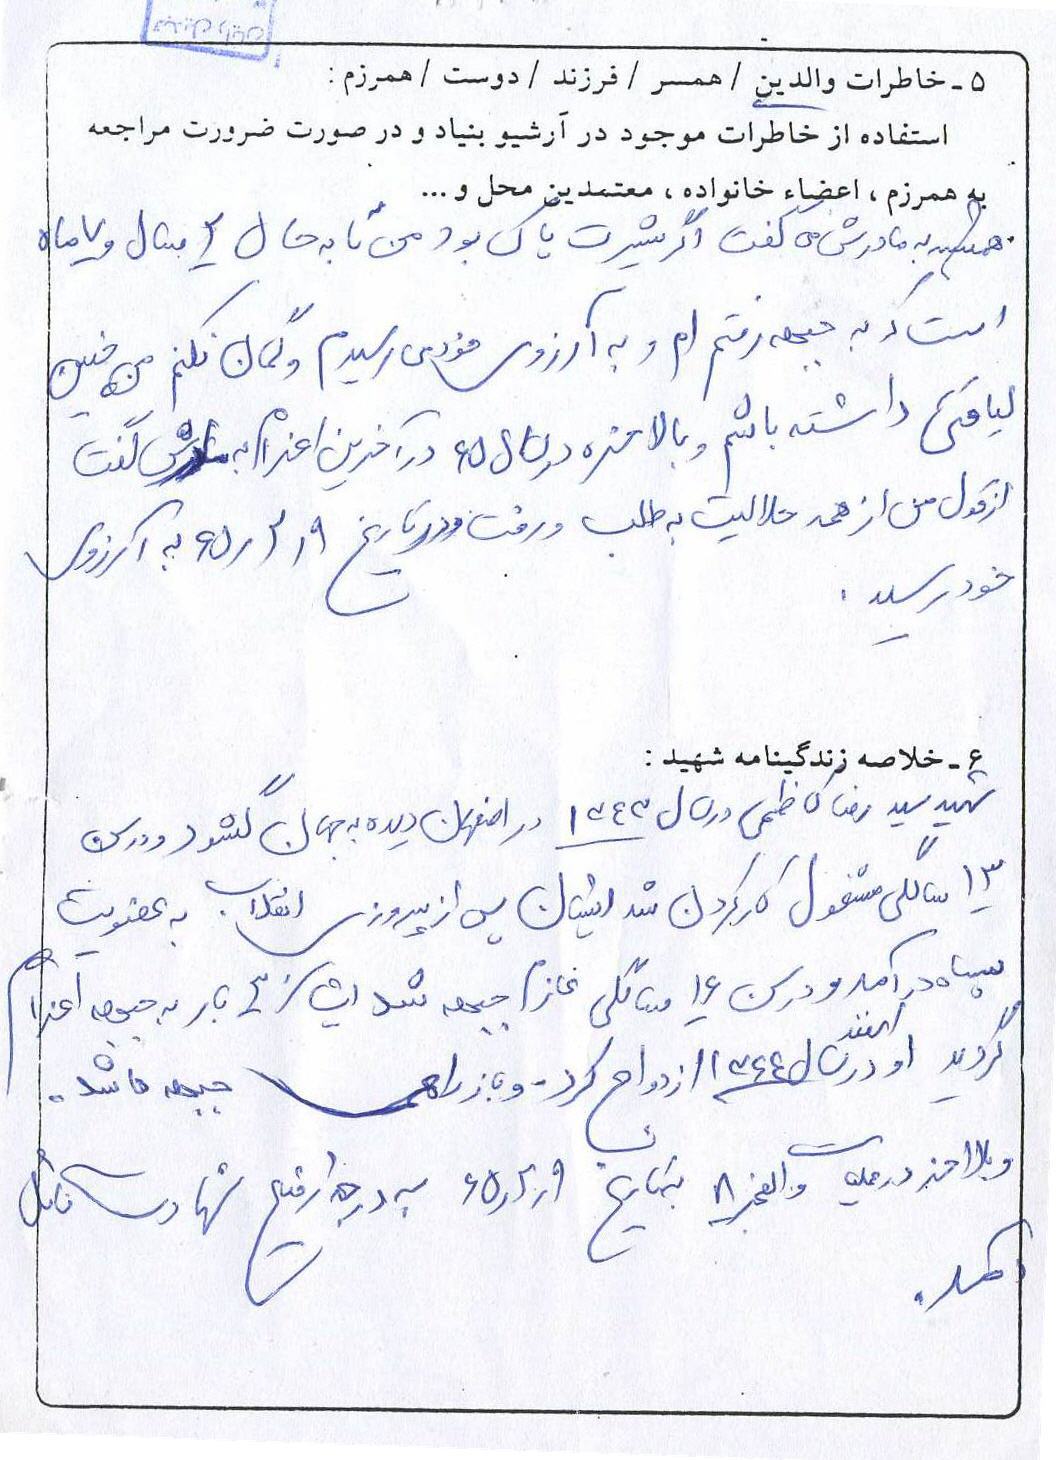 ۵ ـ خاطرات والدین / همسر / فرزند / دوست / همرزم :
استفاده از خاطرات موجود در آرشیو بنیاد و در صورت ضرورت مراجعه
به همرزم ، اعضاء خانواده ، معتمدین محل و ...
همیشه به مادرش می گفت اگر شیرت پاک بود من تا به حال ۲ سال و ۷ ماه
است که به جبهه رفته ام و به آرزوی خود می رسیدم و گمان نکنم من چنین
لیاقتی داشته باشم و بالاخره در سال ۶۵ در آخرین اعزام به مادرش گفت
از قول من از همه حلالیت به طلب و رفت و در تاریخ ۶۵٫۲٫۹ به آرزوی
خود رسید .
۶ ـ خلاصه زندگینامه شهید :
شهید سید رضا کاظمی در سال ۱۳۴۳ در اصفهان دیده به جهان گشود و در سن
۱۳ سالگی مشغول کار کردن شد ایشان پس از پیروزی انقلاب به عضویت
سپاه درآمد و در سن ۱۶ سالگی عازم جبهه شد ایشان ۳ بار به جبهه اعزام
گردید او در اسفند سال ۱۳۶۴ ازدواج کرد - و باز راهی جبهه ها شد .
و بلااخره در عملیات والفجر ۸ بتاریخ ۶۵٫۲٫۹ به درجه رفیع شهادت نائل
آمد .